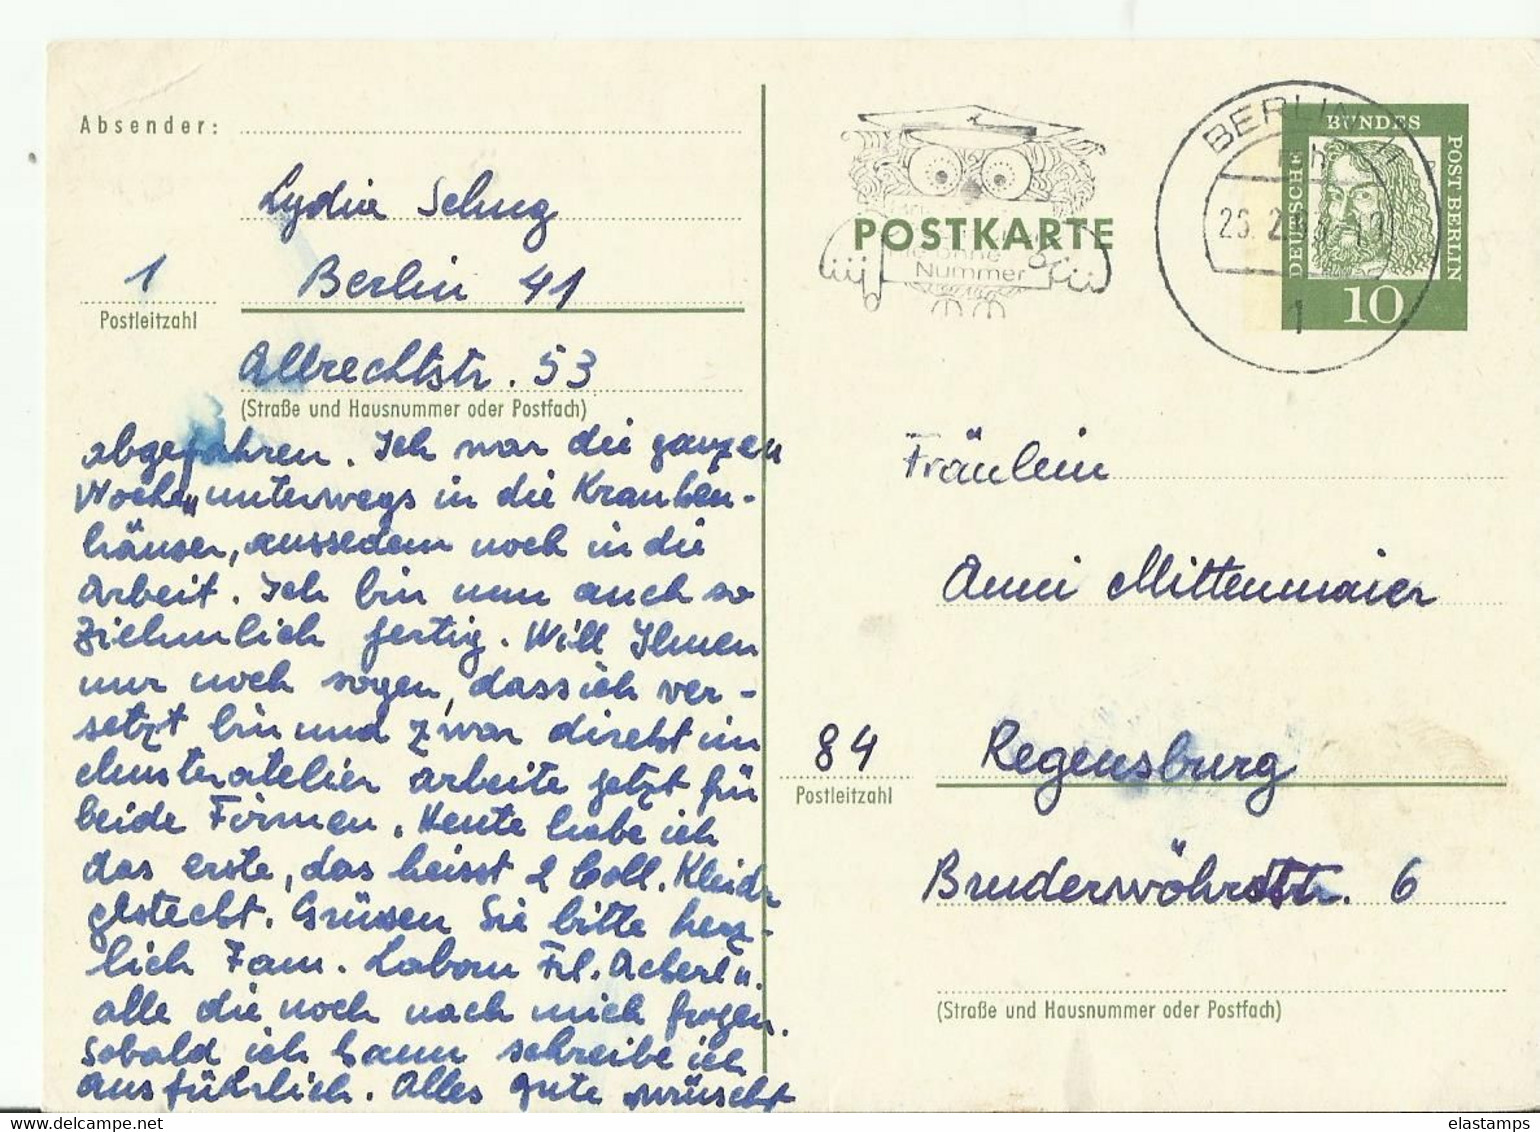 Absender:
Lydia Schug
1 Berlin 41
Postleitzahl
Albrechtstr. 53
(Straße und Hausnummer oder Postfach)
abgefahren. Ich war die ganzen
Woche unterwegs in die Kranken-
häuser, aussedem noch in die
Arbeit. Ich bin nun auch so
ziehmlich fertig. Will Ihnen
nur noch sagen, dass ich ver-
setzt bin und zwar direkt im
Musteratelier arbeite jetzt für
beide Firmen. Heute habe ich
das erste, das heisst 2 Coll. Kleidr
gestecht. Grüssen Sie bitte herz-
lich Fam. Labom Frl. Acherl u.
alle die noch nach mich fragen.
Sobald ich kann schreibe ich
ausführlich. Alles gute wünscht
POSTKARTE
ohne
Nummer
BERLIN 11
mh
1
DEUTSCHE
BUNDES
POST BERLIN
10
Fräulein
Anni Mittenmaier
84 Regensburg
Postleitzahl
Bruderwöhrdstr. 6
(Straße und Hausnummer oder Postfach)
elastamps